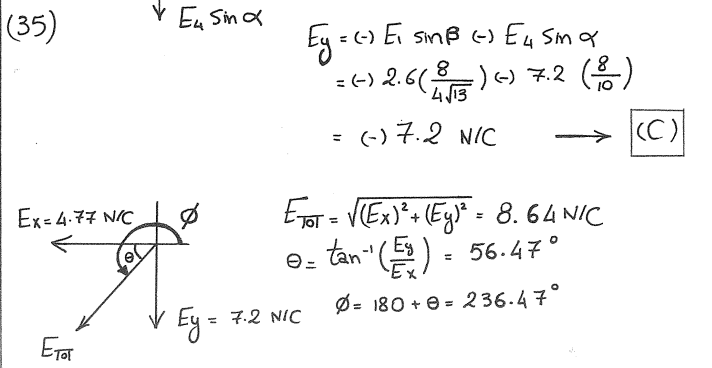 (35)
E4 Sin α
Ey = (-) E1 sin β (-) E4 Sin α
= (-) 2.6 (8/4√13) (-) 7.2 (8/10)
= (-) 7.2 N/C ⟶ (C)
Ex = 4.77 N/C
ø
θ
Ey = 7.2 N/C
ETOT
ETOT = √(Ex)² + (Ey)² = 8.64 N/C
θ = tan⁻¹ (Ey/Ex) = 56.47°
ø = 180 + θ = 236.47°